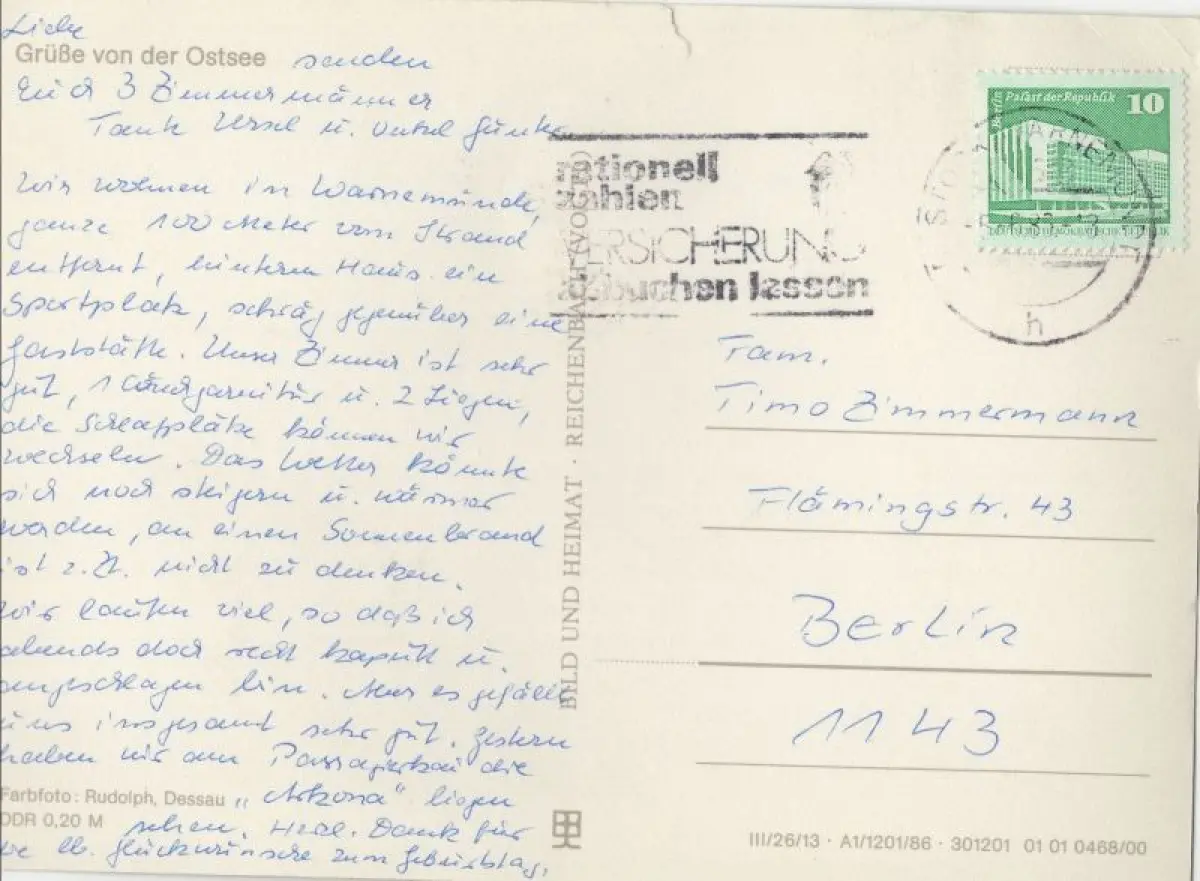 Liebe
Grüße von der Ostsee senden
Euch 3 Zimmermänner
Tante Ursel u. Onkel Günter
Wir wohnen in Warnemünde,
ganze 100 Meter vom Strand
entfernt, hinterm Haus ein
Sportplatz, schräg gegenüber eine
Gaststätte. Unser Zimmer ist sehr
gut, 1 Couchgarnitur u. 2 Liegen,
die Schlafplätze können wir
wechseln. Das Wetter könnte
sich noch steigern u. wärmer
werden, an einen Sonnenbrand
ist z. Zt. nicht zu denken.
Wir laufen viel, so daß ich
abends doch recht kaputt u.
angeschlagen bin. Aber es gefällt
uns insgesamt sehr gut. Gestern
haben wir am Passagierkai die
Farbfoto: Rudolph, Dessau „Arkona" liegen
DDR 0,20 M sehen. Herzl. Dank für
die lb. Glückwünsche zum Geburtstag.
BILD UND HEIMAT · REICHENBACH (VOGTL)
rationell
zahlen
VERSICHERUNG
abbuchen lassen
Berlin Palast der Republik 10
WARNEMÜNDE
h
Fam.
Timo Zimmermann
Flämingstr. 43
Berlin
1143
III/26/13 · A1/1201/86 · 301201 01 01 0468/00